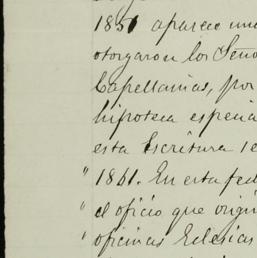 1851 aparece una
otorgaron los Seño
Capellanias, por
hipoteca especia
esta Escritura se
" 1861. En esta fec
" el oficio que origi
" oficinas Eclesias